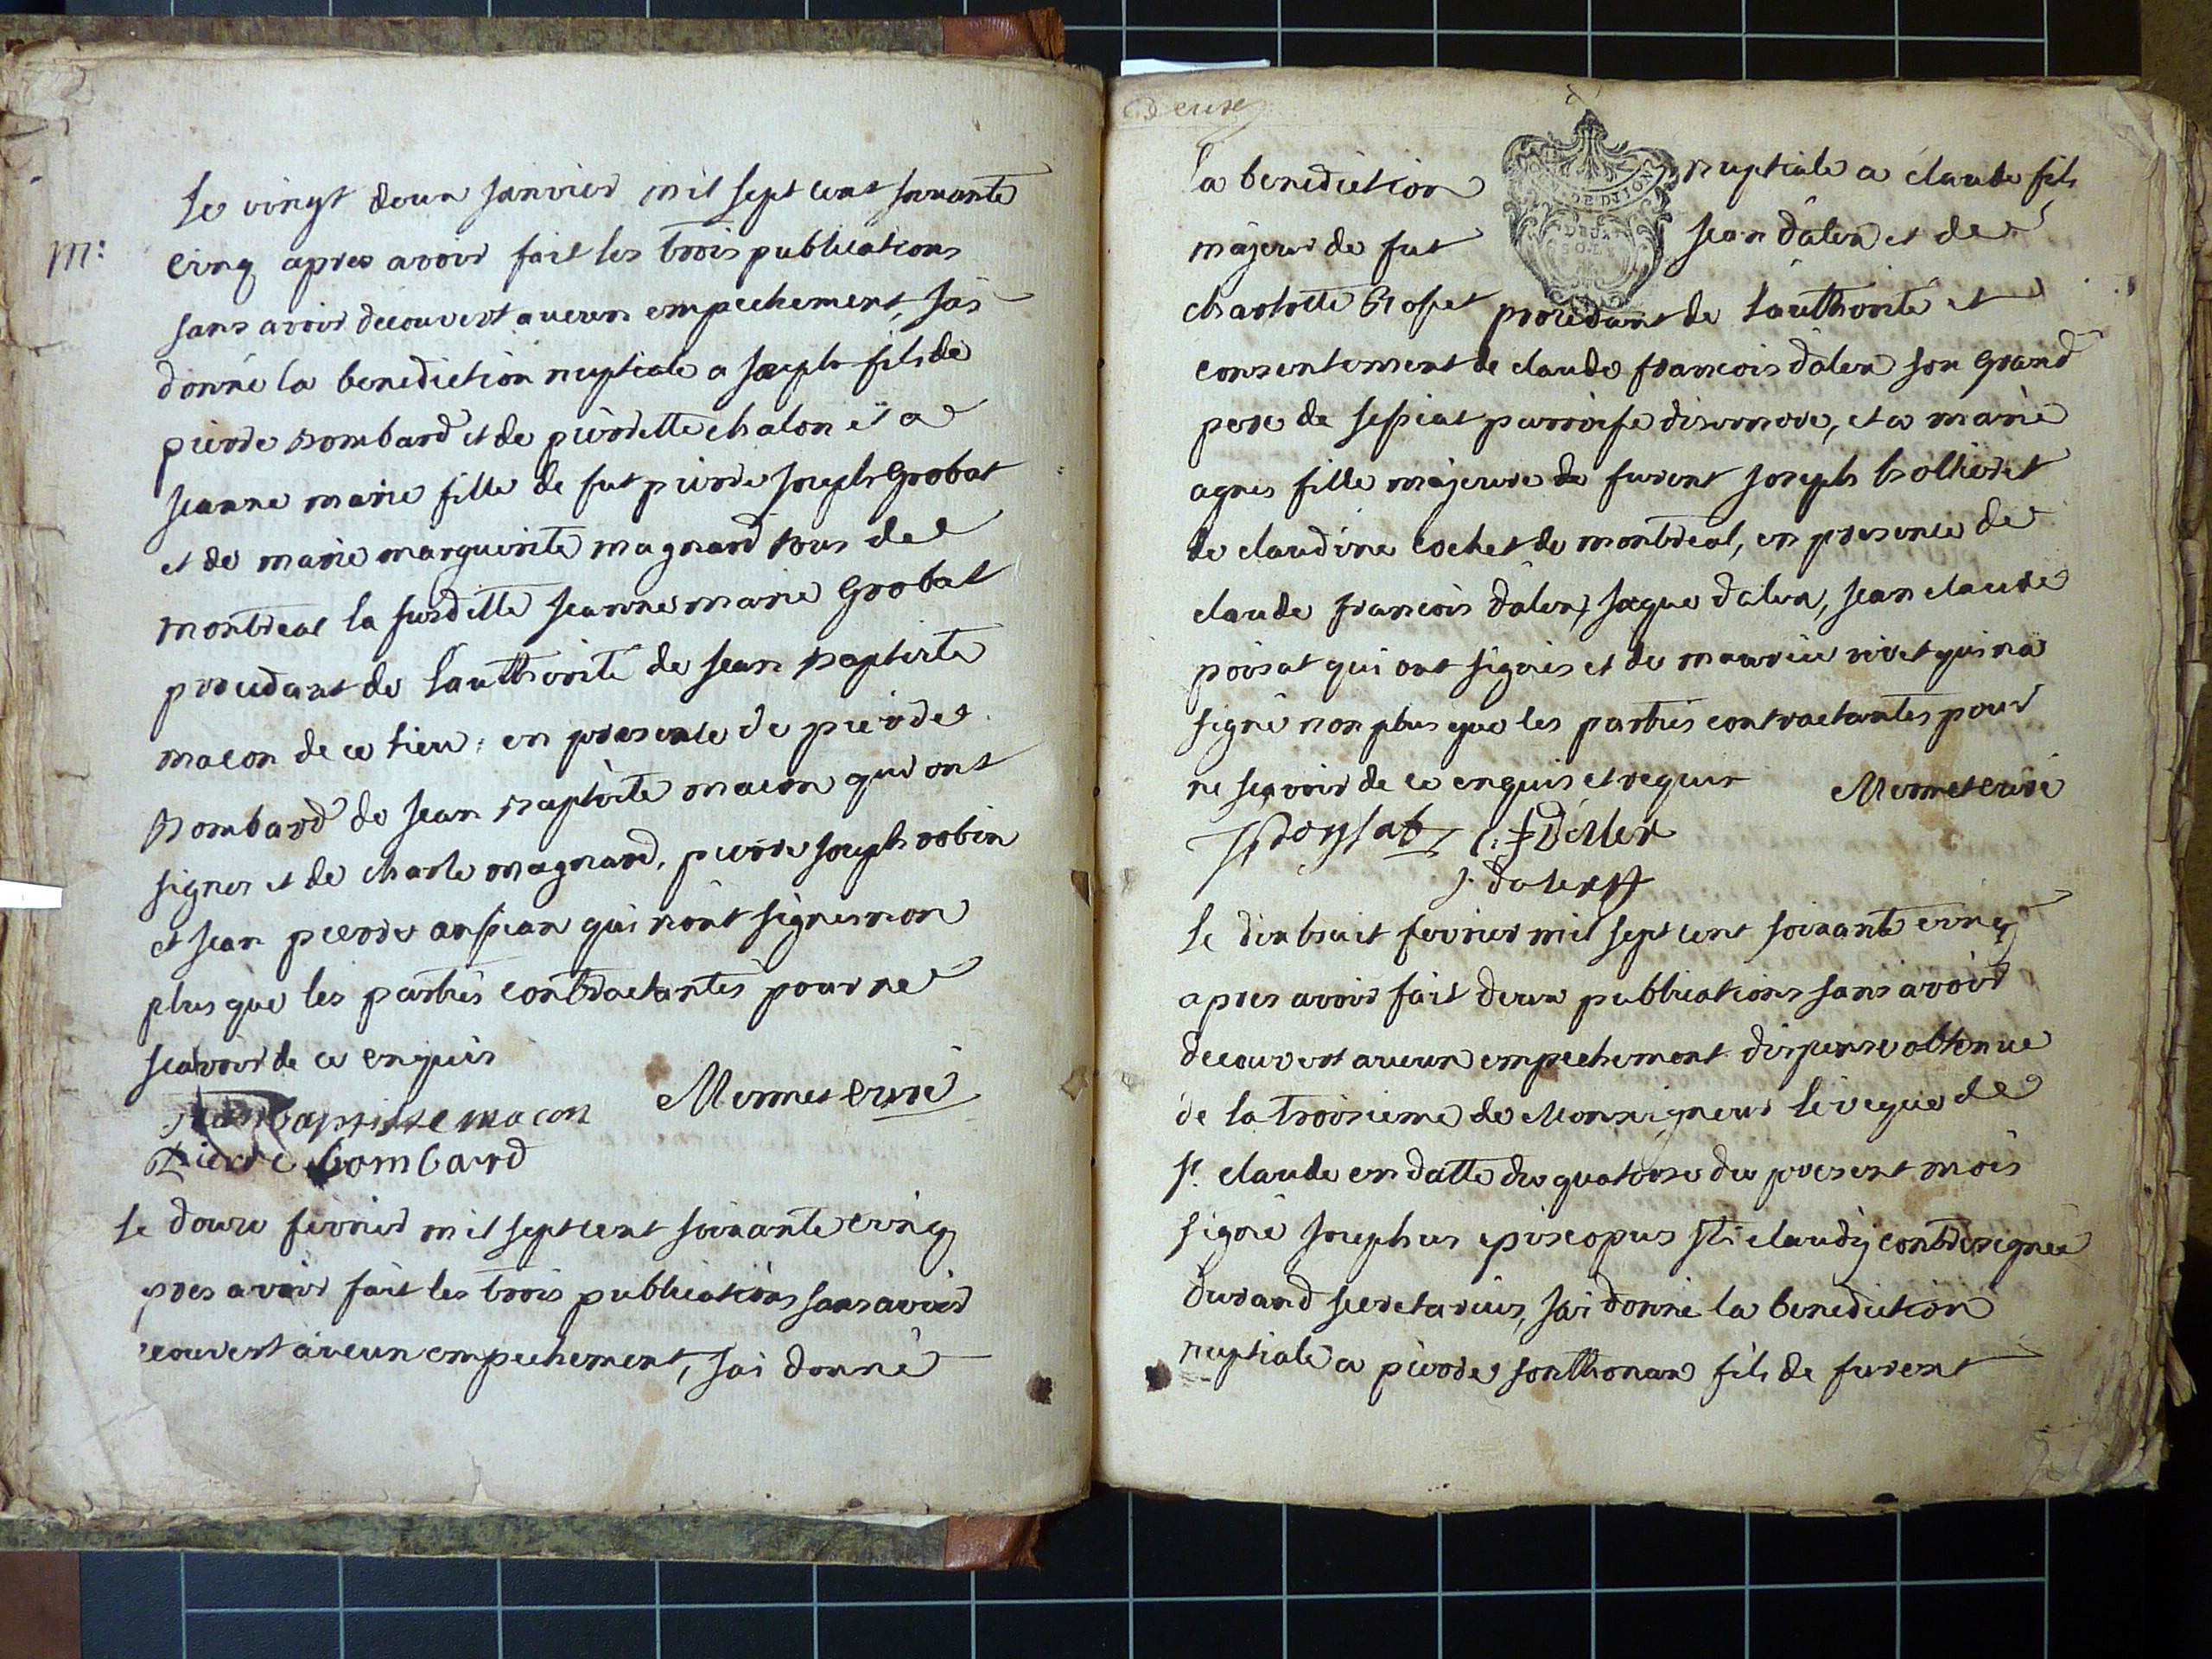 m:
le vingt deux janvier mil sept cent soixante
cinq apres avoir fait les trois publications
sans avoir decouvert aucun empechement, jai
donné la benediction nuptiale a joseph fils de
pierre bombard et de pierrette chalon et a
jeanne marie fille de fut pierre joseph grobat
et de marie marguerite magnard tous de
montreal la susditte jeanne marie grobat
procedant de l'authorité de jean baptiste
macon de ce lieu, en presence de pierre
bombard de jean baptiste macon qui ont
signes et de charle magnard, pierre joseph robin
et jean pierre ansean qui n'ont signes non
plus que les parties contractantes pour ne
scavoir de ce enquis
Mermet curé
jean baptiste macon
Pierre bombard
le douze fevrier mil sept cent soixante cinq
pres avoir fait les trois publications sans avoir
ecouvert aucun empechement, jai donné
deuse
la benediction nuptiale a claude fils
majeur de fut jean d'alex et de
charlotte Rosset procedant de l'authorité et
consentement de claude francois d'alex son grand
pere de sessiat parroisse disernore, et a marie
agnes fille majeure de furent joseph trollieret
de claudine cochet de montreal, en presence de
claude francois d'alex, jaque d'alex, jean claude
poisat qui ont signés et de maurice vivet qui na
signé non plus que les parties contractantes pour
ne scavoir de ce enquis et requis Mermet curé
Poysat C. F Daller
j. dalex
le dix huit fevrier mil sept cent soixante cinq
apres avoir fait deux publications sans avoir
decouvert aucun empechement dispense obtenue
de la troisieme de Monseigneur l'eveque de
st. claude en datte du quatorse du present mois
signé josephus episcopus sti claudij contresigné
durand secretarius, jai donné la benediction
nuptiale a pierre sonthonax fils de furent